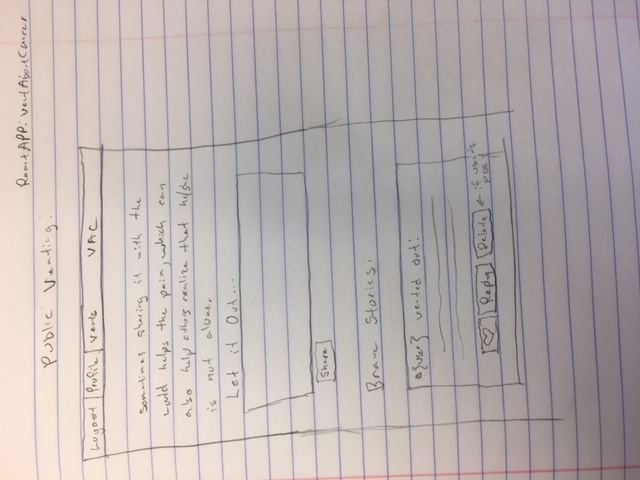 React APP: VentAboutCancer
Public Venting:
Logout Profile Vents VAC
Sometimes sharing it with the
world helps the pain, which can
also help others realize that he/she
is not alone.
Let it Out...
Share
Brave Stories:
${user} vented out:
Reply Delete ← if user's
post